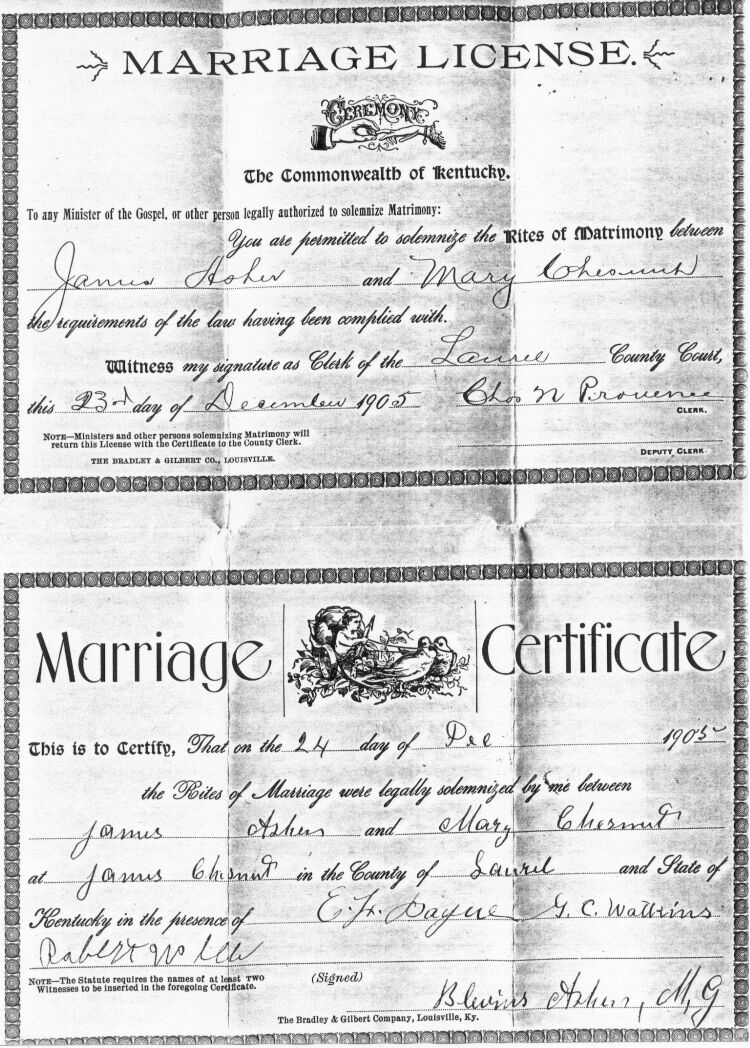 MARRIAGE LICENSE.
CEREMONY
The Commonwealth of Kentucky.
To any Minister of the Gospel, or other person legally authorized to solemnize Matrimony:
You are permitted to solemnize the Rites of Matrimony between
James Asher and Mary Chesnut
the requirements of the law having been complied with.
Witness my signature as Clerk of the Laurel County Court,
this 23rd day of December 1905 Chas N Provence
CLERK.
NOTE—Ministers and other persons solemnizing Matrimony will
return this License with the Certificate to the County Clerk.
DEPUTY CLERK
THE BRADLEY & GILBERT CO., LOUISVILLE.
Marriage Certificate
This is to Certify, That on the 24 day of Dec 1905
the Rites of Marriage were legally solemnized by me between
James Asher and Mary Chesnut
at James Chesnut in the County of Laurel and State of
Kentucky in the presence of Payne G. C. Watkins
Robert
NOTE—The Statute requires the names of at least TWO
Witnesses to be inserted in the foregoing Certificate.
(Signed)
Blevins Asher, M, G
The Bradley & Gilbert Company, Louisville, Ky.